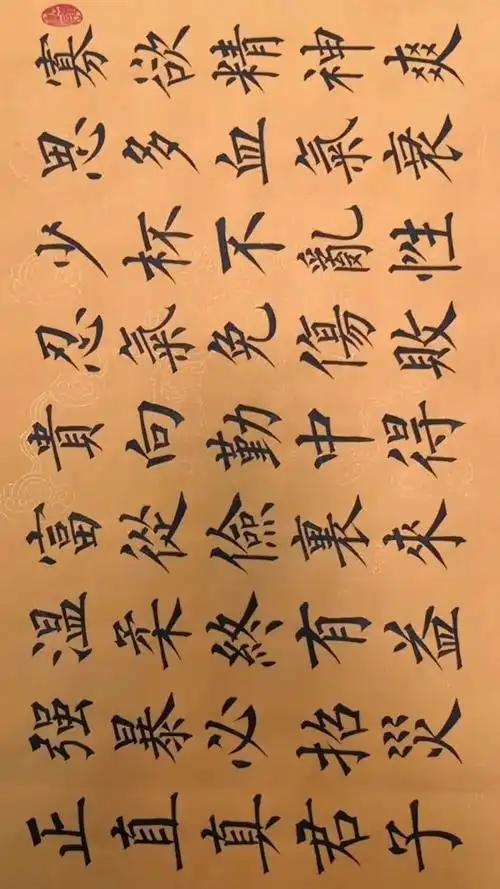 寡欲精神爽
思多血氣衰
少杯不亂性
忍氣免傷敗
貴向勤中得
富從儉裏來
溫柔終有益
強暴必招災
正直真君子